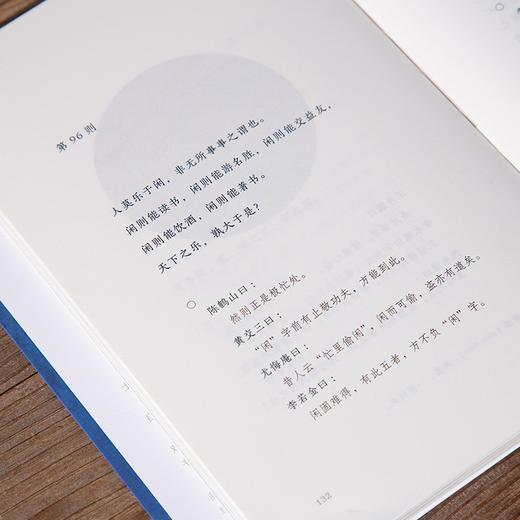 第 96 则
人莫乐于闲，非无所事事之谓也。
闲则能读书，闲则能游名胜，闲则能交益友，
闲则能饮酒，闲则能著书。
天下之乐，孰大于是？
陈鹤山曰：
然则正是极忙处。
黄交三曰：
“闲”字前有止敬功夫，方能到此。
尤悔庵曰：
昔人云“忙里偷闲”，闲而可偷，盗亦有道矣。
李若金曰：
闲固难得，有此五者，方不负“闲”字。
132